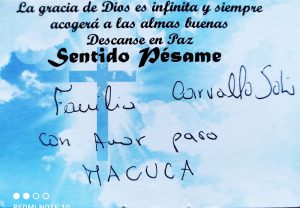 La gracia de Dios es infinita y siempre
acogerá a las almas buenas
Descanse en Paz
Sentido Pésame
Familia Carvallo Solis
con Amor para
MACUCA
REDMI NOTE 10